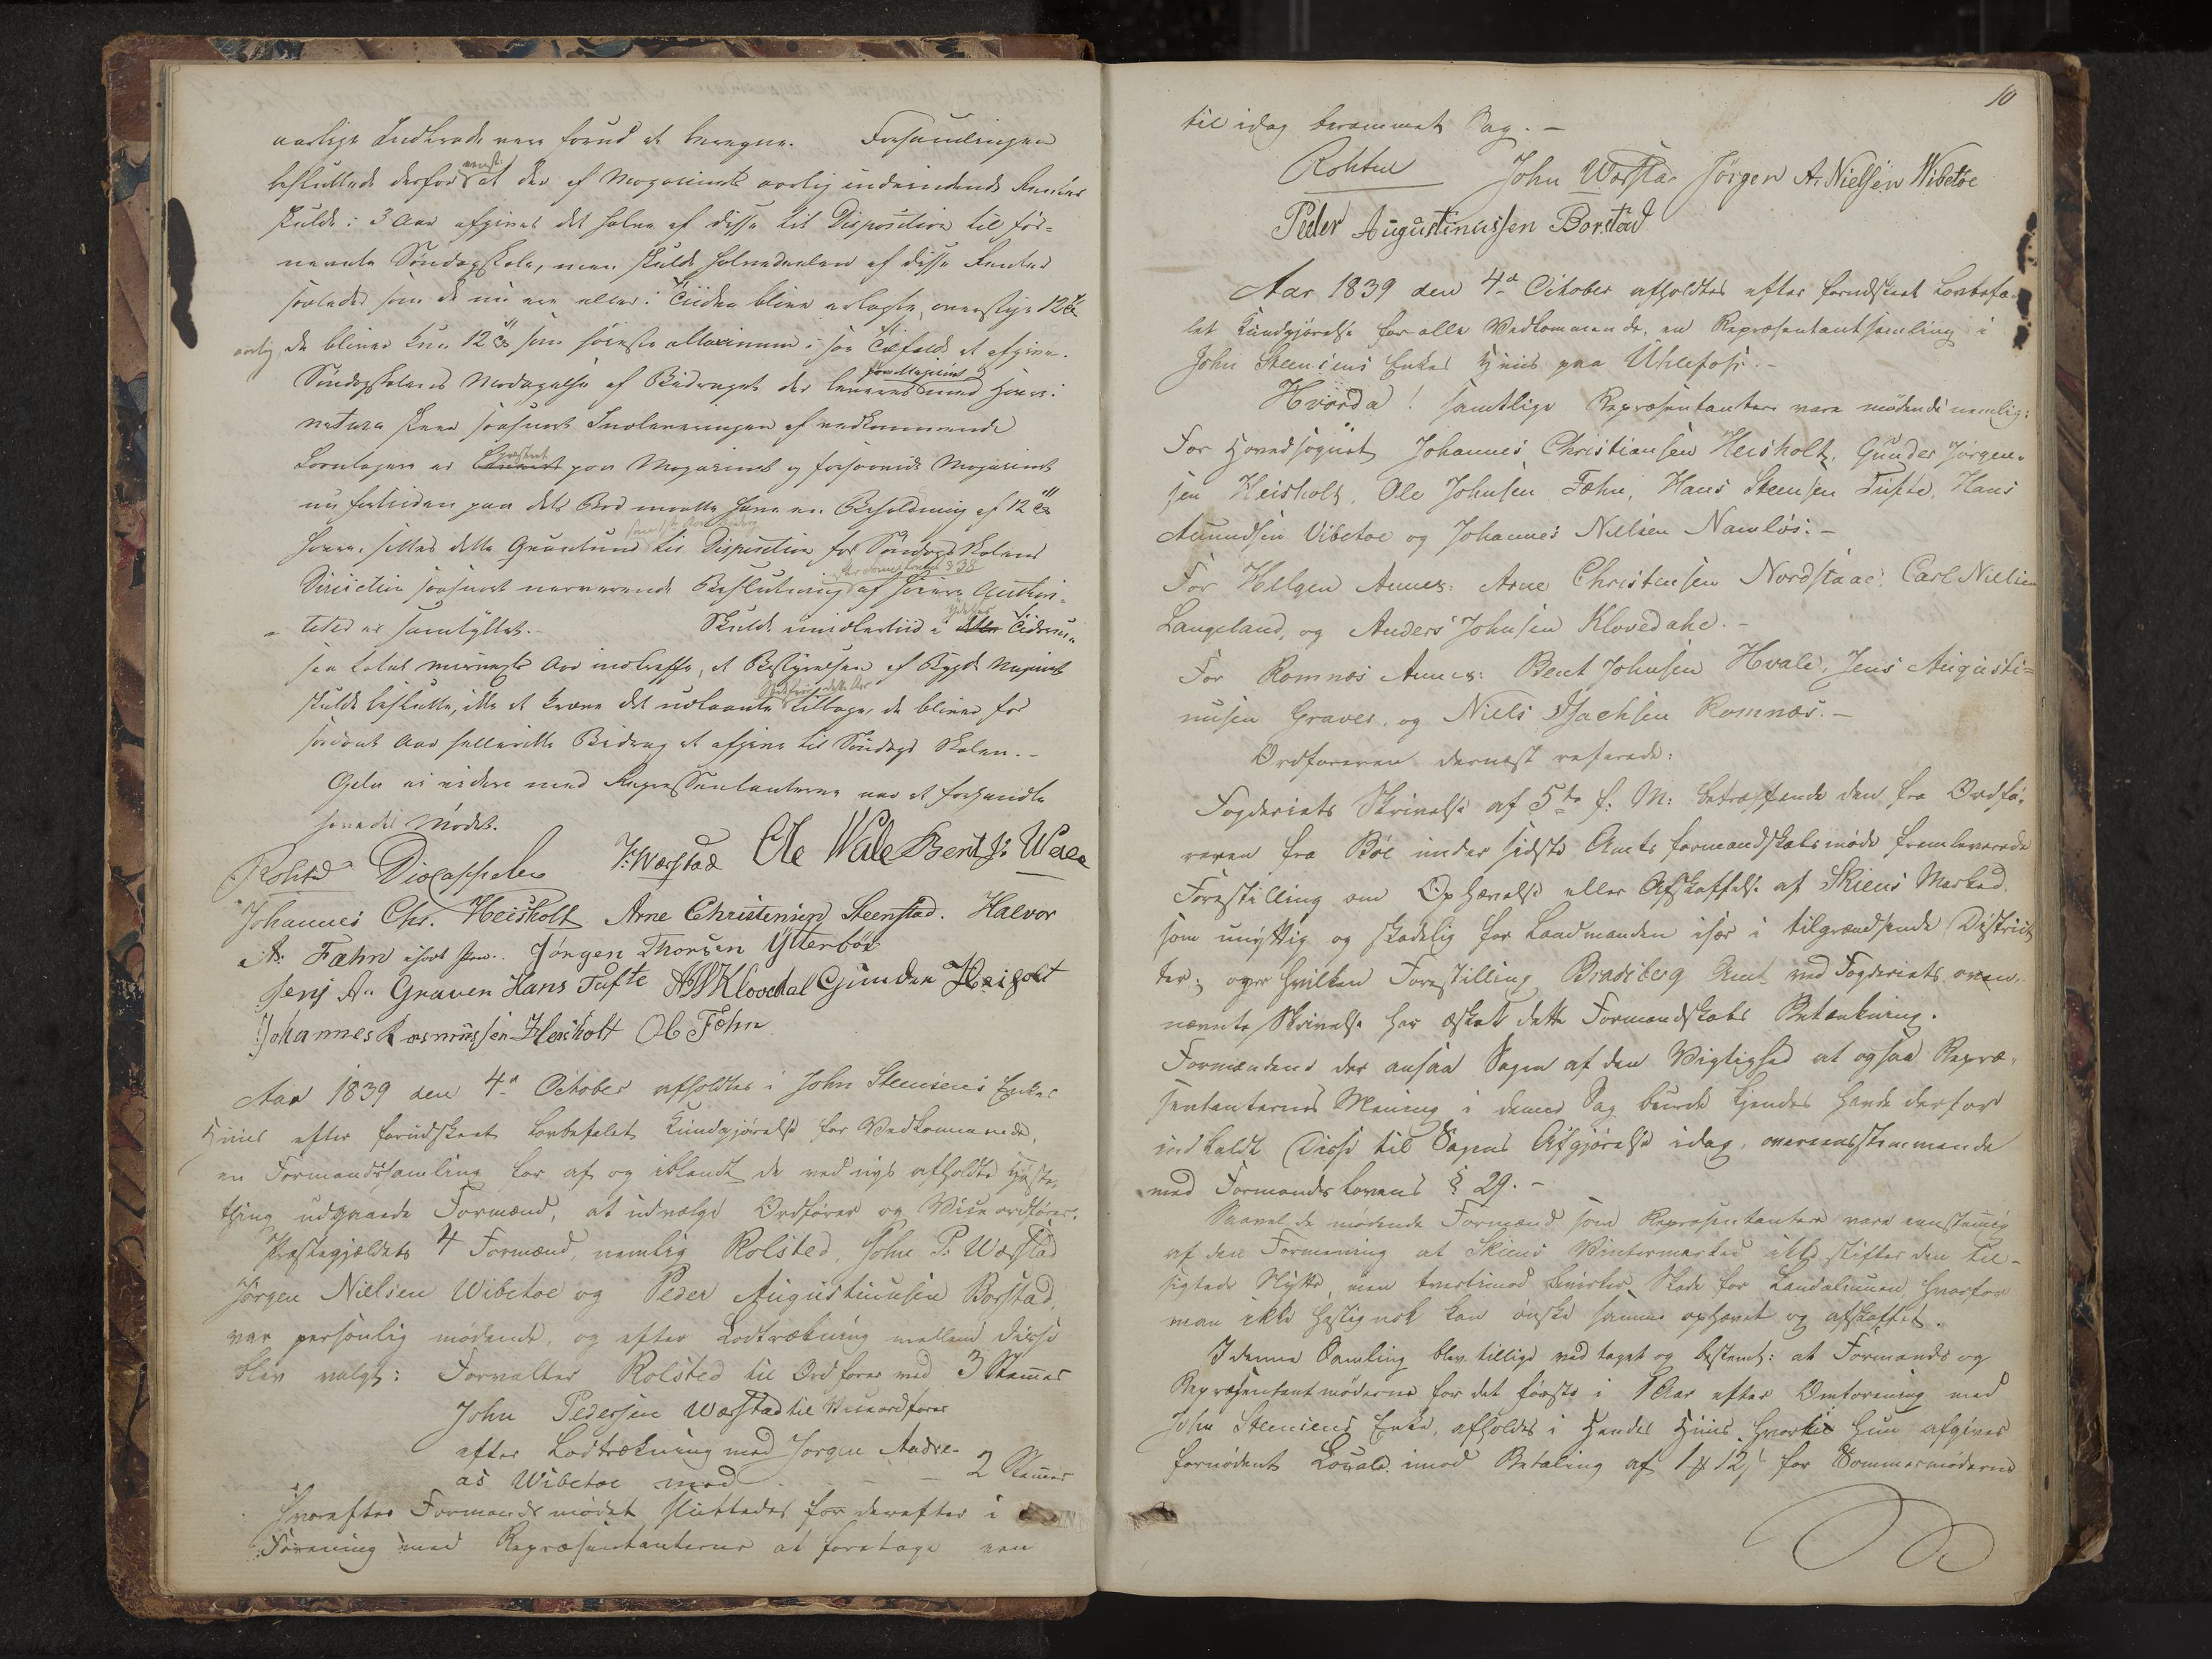 aarlige Indkomst være forud at beregne. Forsamlingen
besluttede derfor at der af Magazinets aarlig indvindende Renter
skulde i 3 Aar afgives det halve af disse til Disposition til for-
nævnte Søndagsskole, men skulde halvedeelen af disse Renter
saaledes som de nu ere eller i Tiden blive erlagte, overstige 12 Tr
aarlig, da bliver kun 12 Tr som høieste Maximum i saa Tilfælde at afgive.
Søndagsskolens Modtagelse af Bidraget der leveres fra Magazinet med Havre i
natura skeer saasnart Indleveringen af vedkommende
Laantagere er præsteret paa Magazinet og forsaavidt Magazinet
nu fortiden paa dets Bod maatte have en Beholdning af 12 Tr
Havre, stilles dette Qvantum til Disposition for Søndags Skolens
Direction saasnart nærværende Beslutning af høiere Authori-
teter er samtykket. Skulde imidlertiid i Tidrum-
met nævnte Aar indtræffe, at Bestyrelsen af Bygde Magazinet
skulde beslutte, ikke at kræve det udlaante tilbage, da bliver for
saadant Aar heller ikke Bidrag at afgive til Søndags Skolen.-
Da ei videre med Repræsentanterne var at forhandle
hævedes Mødet.
Rolsted Diocappelen J: Wærstad Ole Wale Bent J: Wala
Johannes Chr. Heisholt Arne Christensen Steenstad. Halvor
A: Fæhn Jørgen Thorsen Ytterbøe
Jens A: Graven Hans Tufte AJKlovdal Gunder Heisholt
Johannes Rasmussen Heisholt Ole Fæhn
Aar 1839 den 4de October afholdtes i John Steensens Enkes
Huus efter forudskeet lovbefalet Kundgjørelse for Vedkommende,
en Formandssamling for af og iblandt de ved nys afholdte Høste-
thing udgaaede Formænd, at udvælge Ordfører og Viceordfører.
Præstegjældets 4 Formænd, nemlig Rolsted, John P: Wærstad
Jørgen Nielsen Wibetoe og Peder Augustinusen Borstad,
var personlig mødende, og efter Lodtrækning mellem disse
blev valgt: Forvalter Rolsted til Ordfører med 3 Stemmer
John Pedersen Wærstad til Viceordfører
efter Lodtrækning med Jørgen Andre-
as Wibetoe med - - 2 Stemmer
Hvorefter Formandsmødet sluttedes for derefter i
Forening med Repræsentanterne at foretage een
10
til idag berammet Sag. -
Rolsted John Wærstad Jørgen A: Nielsen Wibetoe
Peder Augustinussen Borstad
Aar 1839 den 4de October afholdtes efter forudskeet lovbefa-
let Kundgjørelse for alle Vedkommende, en Repræsentantsamling i
John Steensens Enkes Huus paa Uhlefoss.-
Hvorda! samtlige Repræsentantere vare mødende nemlig:
For Hovedsognet Johannes Christiansen Heisholt, Gunder Jørgen-
sen Heisholt, Ole Johnsen Fæhn, Hans Steensen Tufte, Hans
Amundsen Vibetoe og Johannes Nielsen Namløs.-
For Helgen Annex: Arne Christensen Nordstaae, Carl Nielsen
Langeland, og Anders Johnsen Klovedahl.-
For Romnæs Annex: Bent Johnsen Hvale, Jens Augusti-
nusen Graver, og Niels Isachsen Romnæs.-
Ordføreren dernæst referede:
Fogderiets Skrivelse af 5te f: M: betræffende den fra Ordfø-
reren fra Bøe under sidste Amts formandskabsmøde fremleverede
Forestilling om Ophævelse eller Afskaffelse af Skiens Marked,
som unyttig og skadelig for Landmanden især i tilgrændsende Distric-
ter; over hvilken Forestilling Bradsberg Amt ved Fogderiets oven-
nævnte Skrivelse har æsket dette Formandskabs Betænkning.
Formændene der ansaa Sagen af den Vigtighed at ogsaa Repræ-
sentanternes Mening i denne Sag burde kjendes havde derfor
indkaldt Disse til Sagens Afgjørelse idag, overeensstemmende
med Formandslovens § 29.-
Saavel de mødende Formænd som Repræsentantere vare eenstemmig
af den Formening at Skiens Vintermarked ikke stifter den til-
sigtede Nytte, men tvertimod bevirker Skade for Landalmuen, hvorfor
man ikke hastig nok kan ønske samme ophævet og afskaffet.
I denne Samling blev tillige vedtaget og bestemt: at Formands og
Repræsentantmøderne for det første i 1 Aar efter Omforening med
John Steensens Enke, afholdes i Hendes Huus hvortil Hun afgiver
fornødent Locale imod Betaling af 1 # 12 s for Sommermøderne